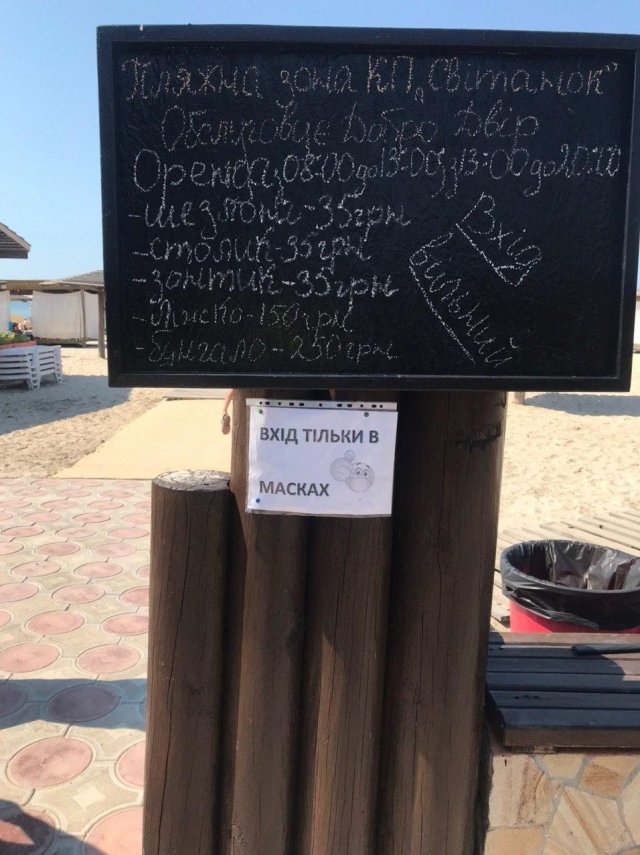 "Пляжна зона КП „Світанок"
Обслуговує Добро Двір
Оренда з 08:00 до 13:00; з 13:00 до 20:00
-шезлонги-35грн
-столик-35грн
-зонтик-35грн
-Ліжко-150грн
-бунгало-250грн
Вхід
вільний
ВХІД ТІЛЬКИ В
МАСКАХ